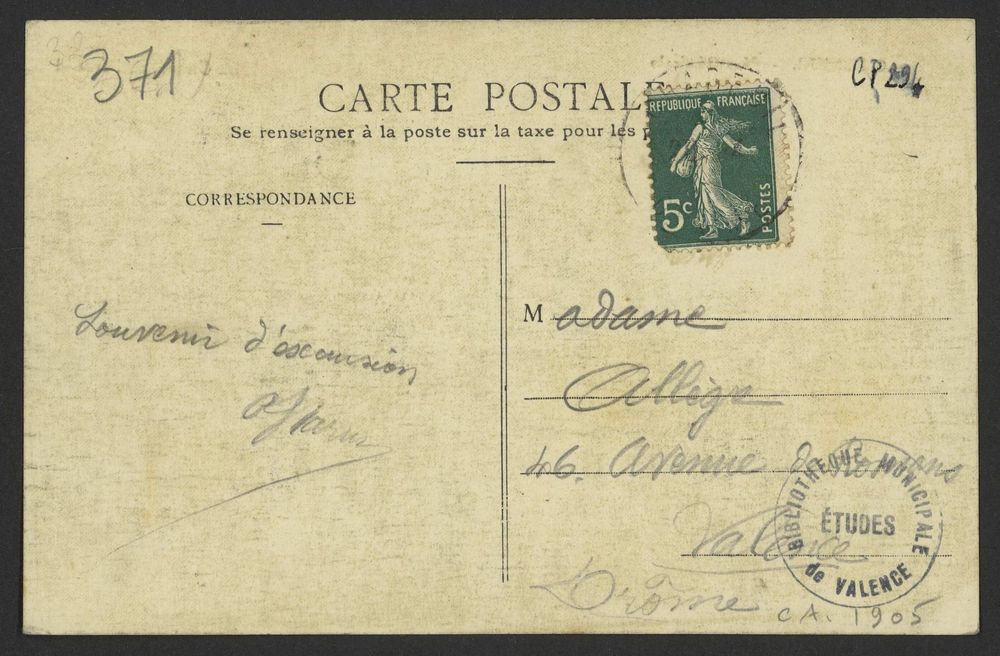 371
CP 294
CARTE POSTALE
Se renseigner à la poste sur la taxe pour les
RÉPUBLIQUE FRANÇAISE
5c
POSTES
CORRESPONDANCE
Souvenir d'éxcursion
Madame
Allègre
46. Avenue de Romans
Valence
Drôme
BIBLIOTHÈQUE MUNICIPALE
ÉTUDES
de VALENCE
CA. 1905